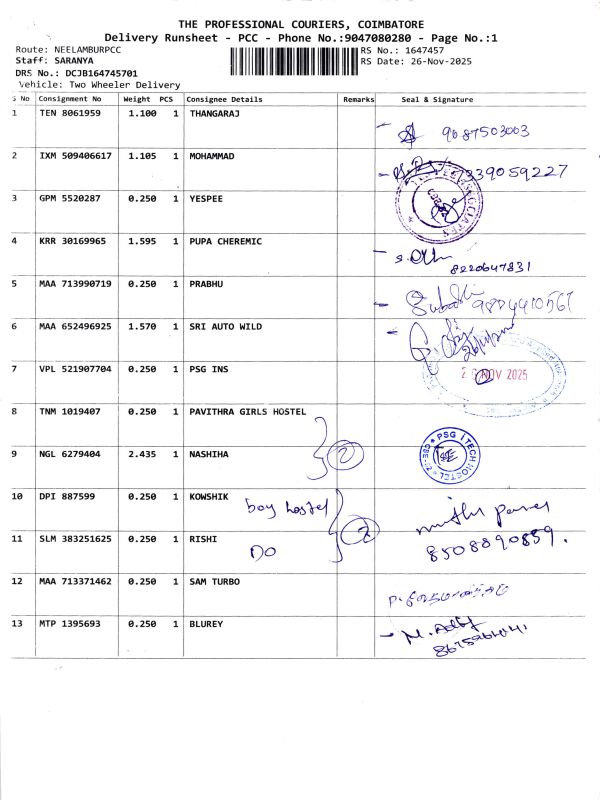 THE PROFESSIONAL COURIERS, COIMBATORE
Delivery Runsheet - PCC - Phone No.:9047080280 - Page No.:1
Route: NEELAMBURPCC RS No.: 1647457
Staff: SARANYA RS Date: 26-Nov-2025
DRS No.: DCJB164745701
Vehicle: Two Wheeler Delivery
S No Consignment No Weight PCS Consignee Details Remarks Seal & Signature
1 TEN 8061959 1.100 1 THANGARAJ
9087503003
2 IXM 509406617 1.105 1 MOHAMMAD
339059227
3 GPM 5520287 0.250 1 YESPEE
4 KRR 30169965 1.595 1 PUPA CHEREMIC
8220647831
5 MAA 713990719 0.250 1 PRABHU
6 MAA 652496925 1.570 1 SRI AUTO WILD
7 VPL 521907704 0.250 1 PSG INS
NOV 2025
8 TNM 1019407 0.250 1 PAVITHRA GIRLS HOSTEL
9 NGL 6279404 2.435 1 NASHIHA 2
PSG ITECH HOSTEL
10 DPI 887599 0.250 1 KOWSHIK boy hostel
2
11 SLM 383251625 0.250 1 RISHI
DO
8508890859.
12 MAA 713371462 0.250 1 SAM TURBO
13 MTP 1395693 0.250 1 BLUREY